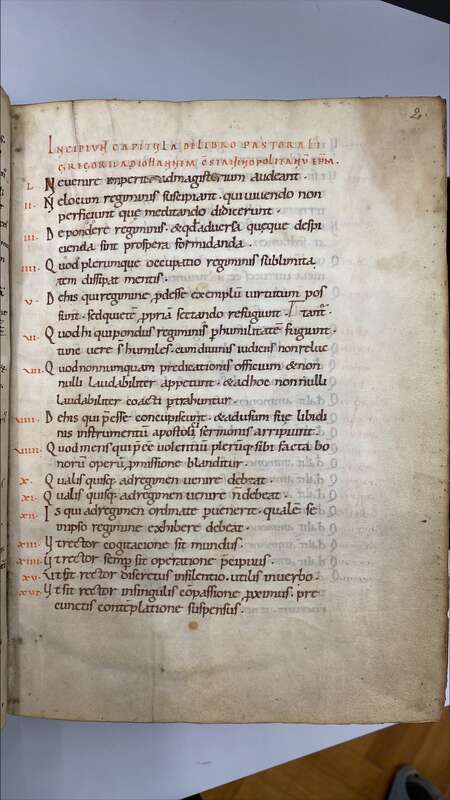 2
INCIPIUN CAPITULA DE LIBRO PASTORALI
GREGORII AD IOHANNEM CSTANTINOPOLITANŪ EPM.
I. Ne uenire imperite ad magisterium audeant.
II. Ne locum regiminis suscipiant. qui uiuendo non
perficiunt que meditando didicerunt.
III. De pondere regiminis. & qd aduersa queque despi
cienda sint prospera formidanda.
IIII. Quod plerumque occupatio regiminis sublimita
tem dissipat mentis.
V. De his qui regimine pdesse exemplū uirtutum pos
sunt. sed quietē ppria sectando refugiunt. tant.
VI. Quod hi qui pondus regiminis p humilitatē fugiunt.
tunc uere s humiles. cum diuinis iudiciis non reluc
VII. Quod nonnumquam predicationis officium & non
nulli laudabiliter appetunt. & ad hoc nonnulli
laudabiliter coacti ptrahuntur.
VIII. De his qui pesse concupiscunt. & ad usum sue libidi
nis instrumentū apostoli sermonis arripiunt.
VIIII. Quod mens qui pee uolentiū plerūq; sibi facta bo
norū operū pmissione blanditur.
X. Qualis quisq; ad regimen uenire debeat.
XI. Qualis quisq; ad regimen uenire n debeat.
XII. Is qui ad regimen ordinate puenerit. qualē se
in ipso regimine exhibere debeat.
XIII. Ut rector cogitacione sit mundus.
XIIII. Ut rector semp sit operatione pcipuus.
XV. Ut sit rector discretus in silentio. utilis in uerbo.
XVI. Ut sit rector in singulis cōpassione pximus. pre
cunctis contēplatione suspensus.